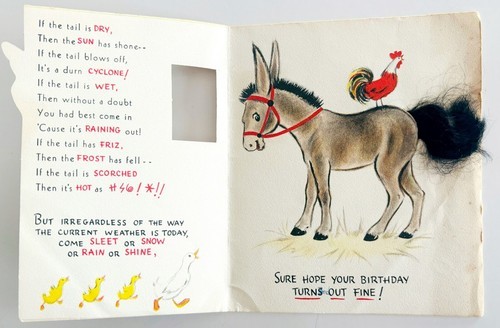 If the tail is DRY,
Then the SUN has shone--
If the tail blows off,
It's a durn CYCLONE!
If the tail is WET,
Then without a doubt
You had best come in
'Cause it's RAINING out!
If the tail has FRIZ,
Then the FROST has fell--
If the tail is SCORCHED
Then it's HOT as #%6!*!!
BUT IRREGARDLESS OF THE WAY
THE CURRENT WEATHER IS TODAY,
COME SLEET OR SNOW
OR RAIN OR SHINE,
SURE HOPE YOUR BIRTHDAY
TURNS OUT FINE!